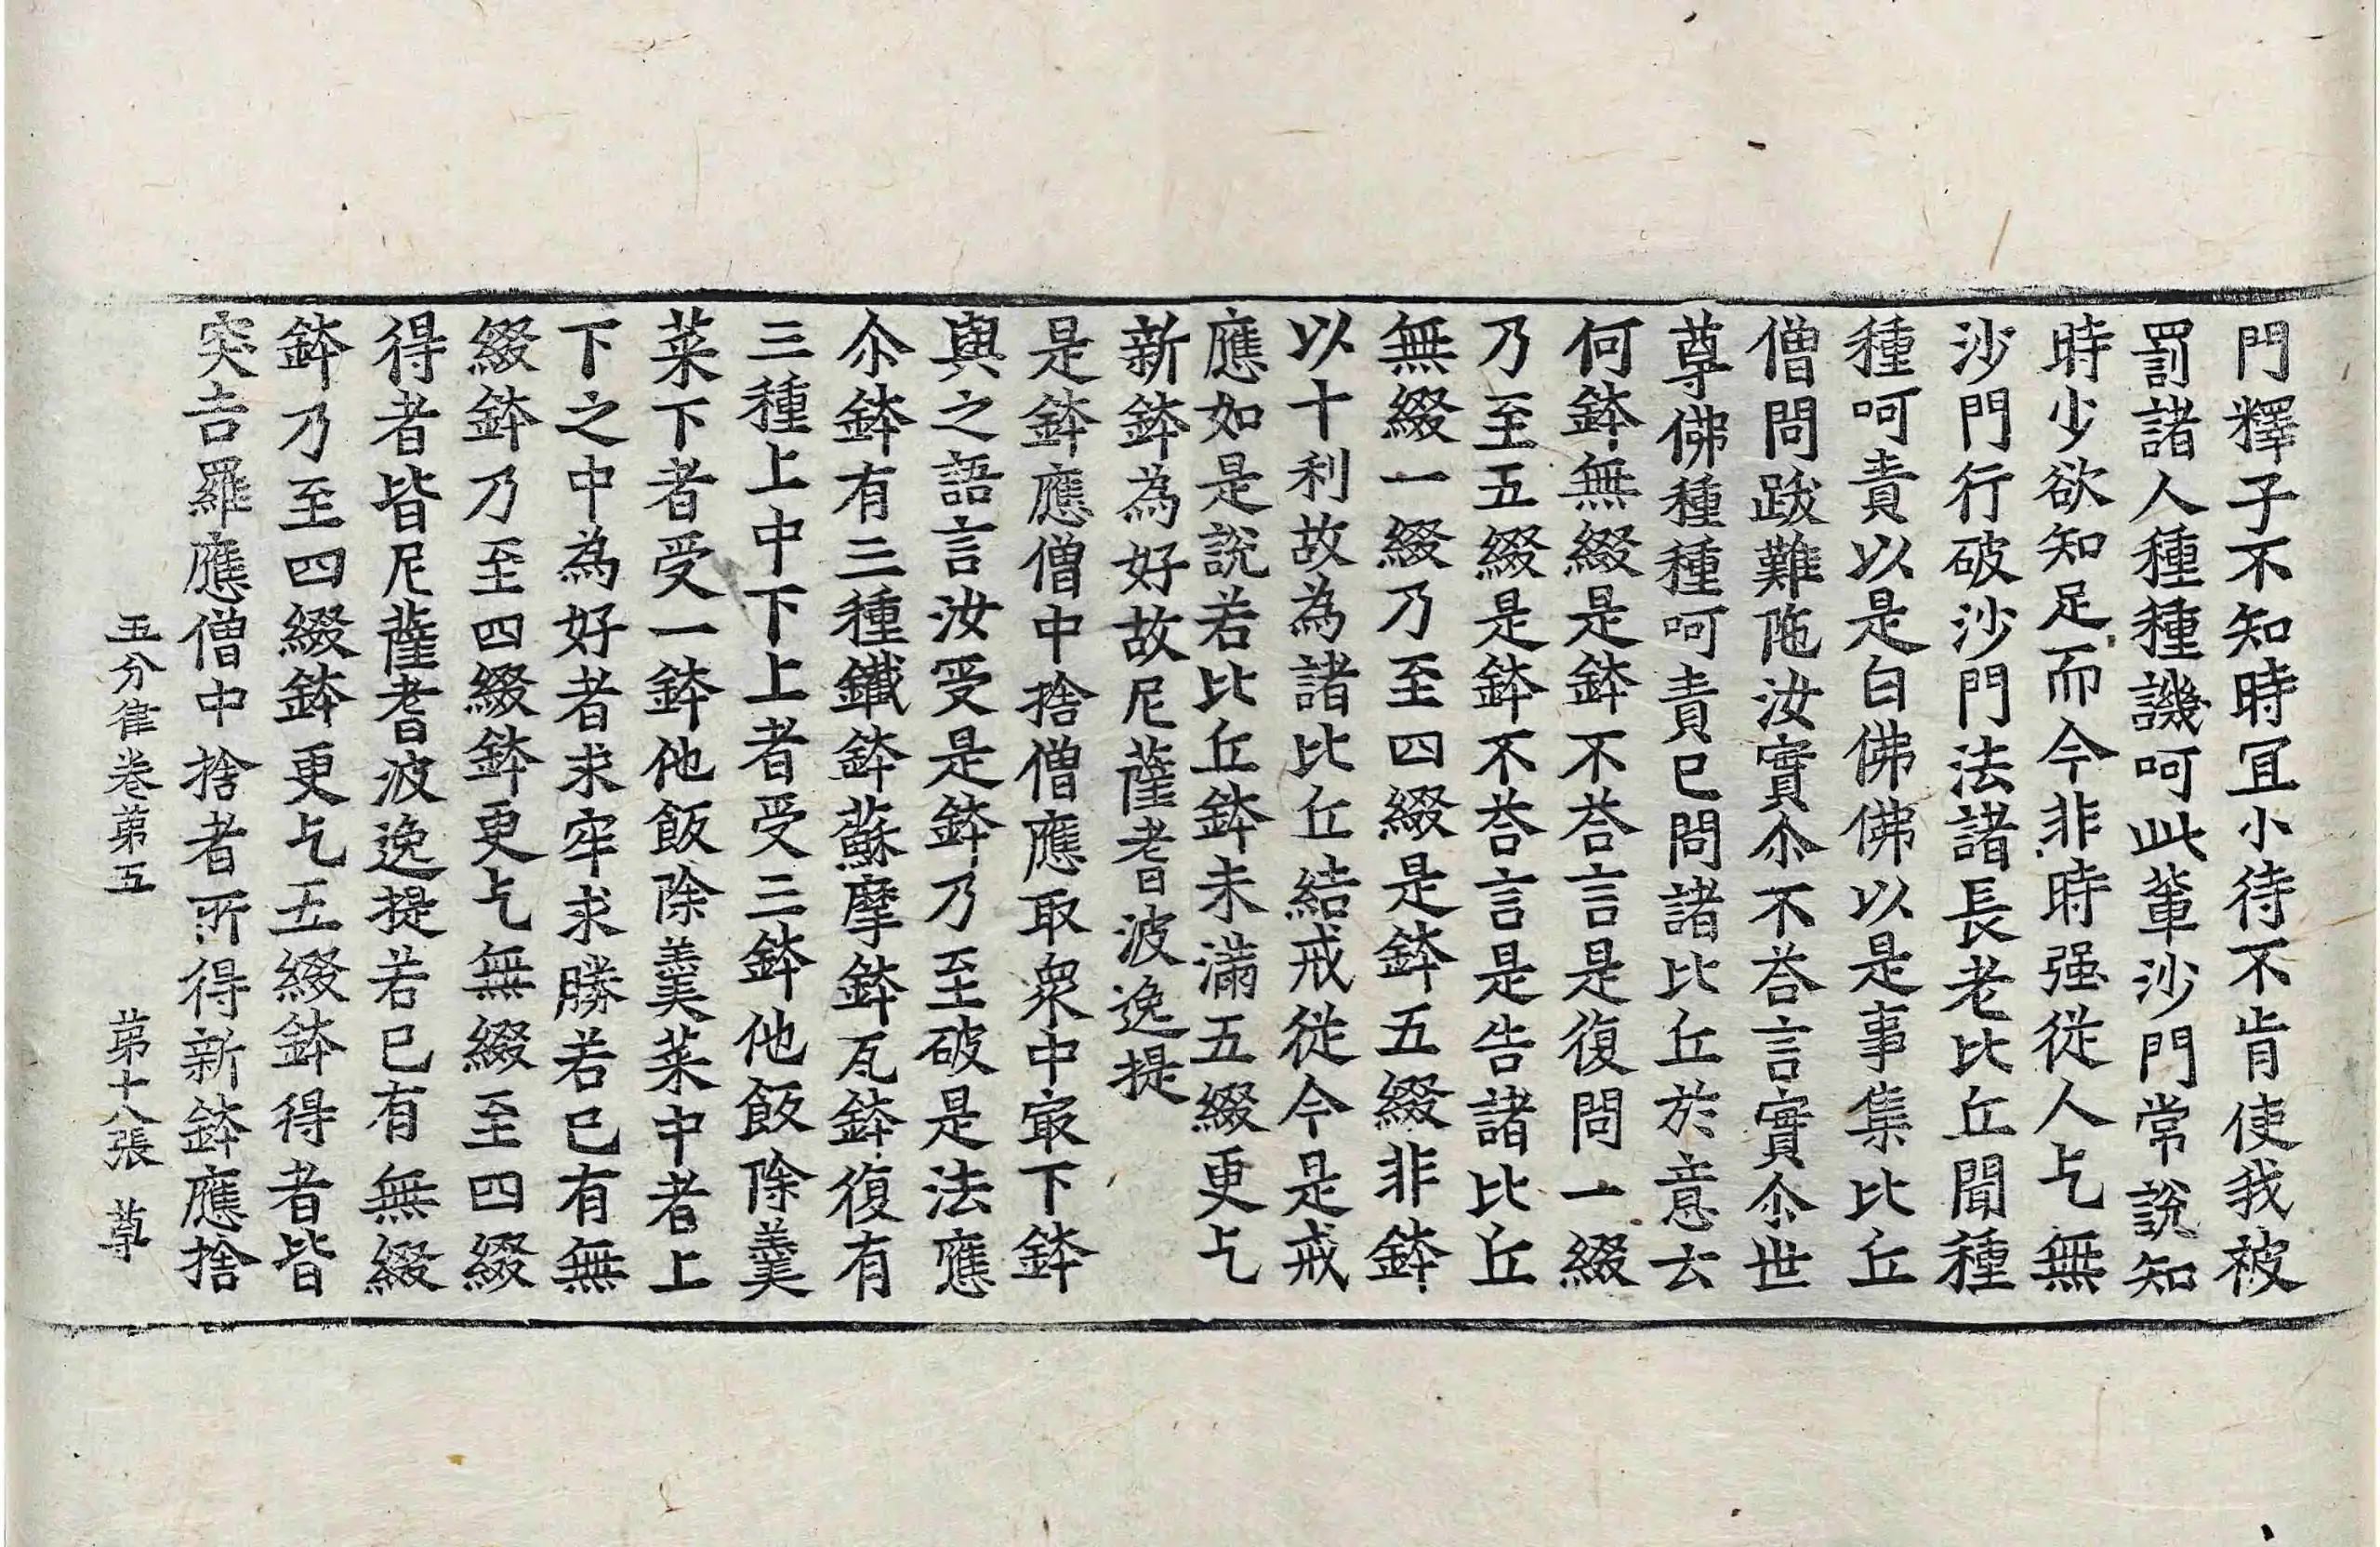 門釋子不知時冝小待不肯使我被
罰諸人種種譏呵此軰沙門常說知
時少欲知足而今非時强從人乞無
沙門行破沙門法諸長老比丘聞種
種呵責以是白佛佛以是事集比丘
僧問跋難陁汝實尒不荅言實尒世
尊佛種種呵責已問諸比丘於意云
何鉢無綴是鉢不荅言是復問一綴
乃至五綴是鉢不荅言是告諸比丘
無綴一綴乃至四綴是鉢五綴非鉢
以十利故為諸比丘結戒從今是戒
應如是說若比丘鉢未滿五綴更乞
新鉢為好故尼薩耆波逸提
是鉢應僧中捨僧應取衆中㝡下鉢
與之語言汝受是鉢乃至破是法應
尒鉢有三種鐵鉢蘇摩鉢瓦鉢復有
三種上中下上者受三鉢他飯除羹
菜下者受一鉢他飯除羹菜中者上
下之中為好者求牢求勝若已有無
綴鉢乃至四綴鉢更乞無綴至四綴
得者皆尼薩耆波逸提若已有無綴
鉢乃至四綴鉢更乞五綴鉢得者皆
突吉羅應僧中捨者所得新鉢應捨
五分律卷第五 第十八張 尊